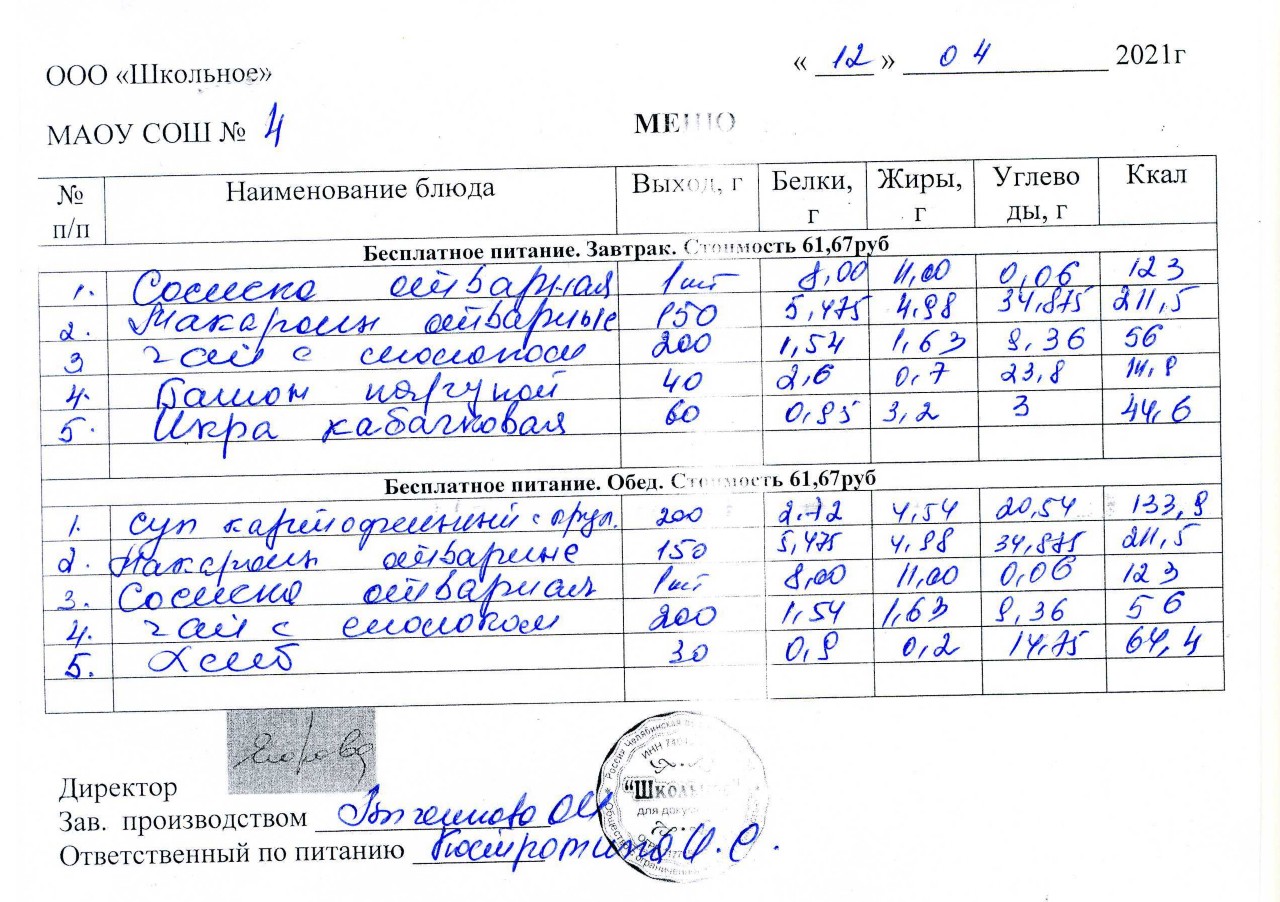 ООО «Школьное»
« 12 » 04 2021г
МАОУ СОШ № 4
МЕНЮ
№ п/п Наименование блюда Выход, г Белки, г Жиры, г Углеводы, г Ккал
Бесплатное питание. Завтрак. Стоимость 61,67руб
1. Сосиска отварная 1 шт 8,00 11,00 0,06 123
2. Макароны отварные 150 5,475 4,98 34,875 211,5
3 чай с молоком 200 1,54 1,63 9,36 56
4. Батон нарезной 40 2,6 0,7 23,8
5. Икра кабачковая 60 0,95 3,2 3 44,6
Бесплатное питание. Обед. Стоимость 61,67руб
1. Суп картофельный с круп. 200 2.72 4,54 20,54 133,9
2. Макароны отварные 150 5,475 4,98 34,875 211,5
3. Сосиска отварная 1 шт 8,00 11,00 0,06 123
4. чай с молоком 200 1,54 1,63 9,36 56
5. Хлеб 30 0,9 0,2 14,75 64,4
Егорова
Директор
Зав. производством
Ответственный по питанию
Россия Челябинская
ИНН
"Школьное"
для доку